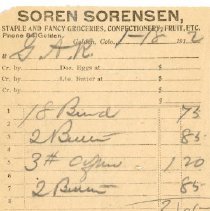 SOREN SORENSEN,
STAPLE AND FANCY GROCERIES, CONFECTIONERY, FRUIT, ETC.
Phone Golden.
Golden, Colo., 1-18 191
M G A R
Cr. by Doz. Eggs at $
Cr. by Lbs Butter at $
1 18 Bread 75
2 2 Butter 85
3 3# 1 20
7 2 Butter 85